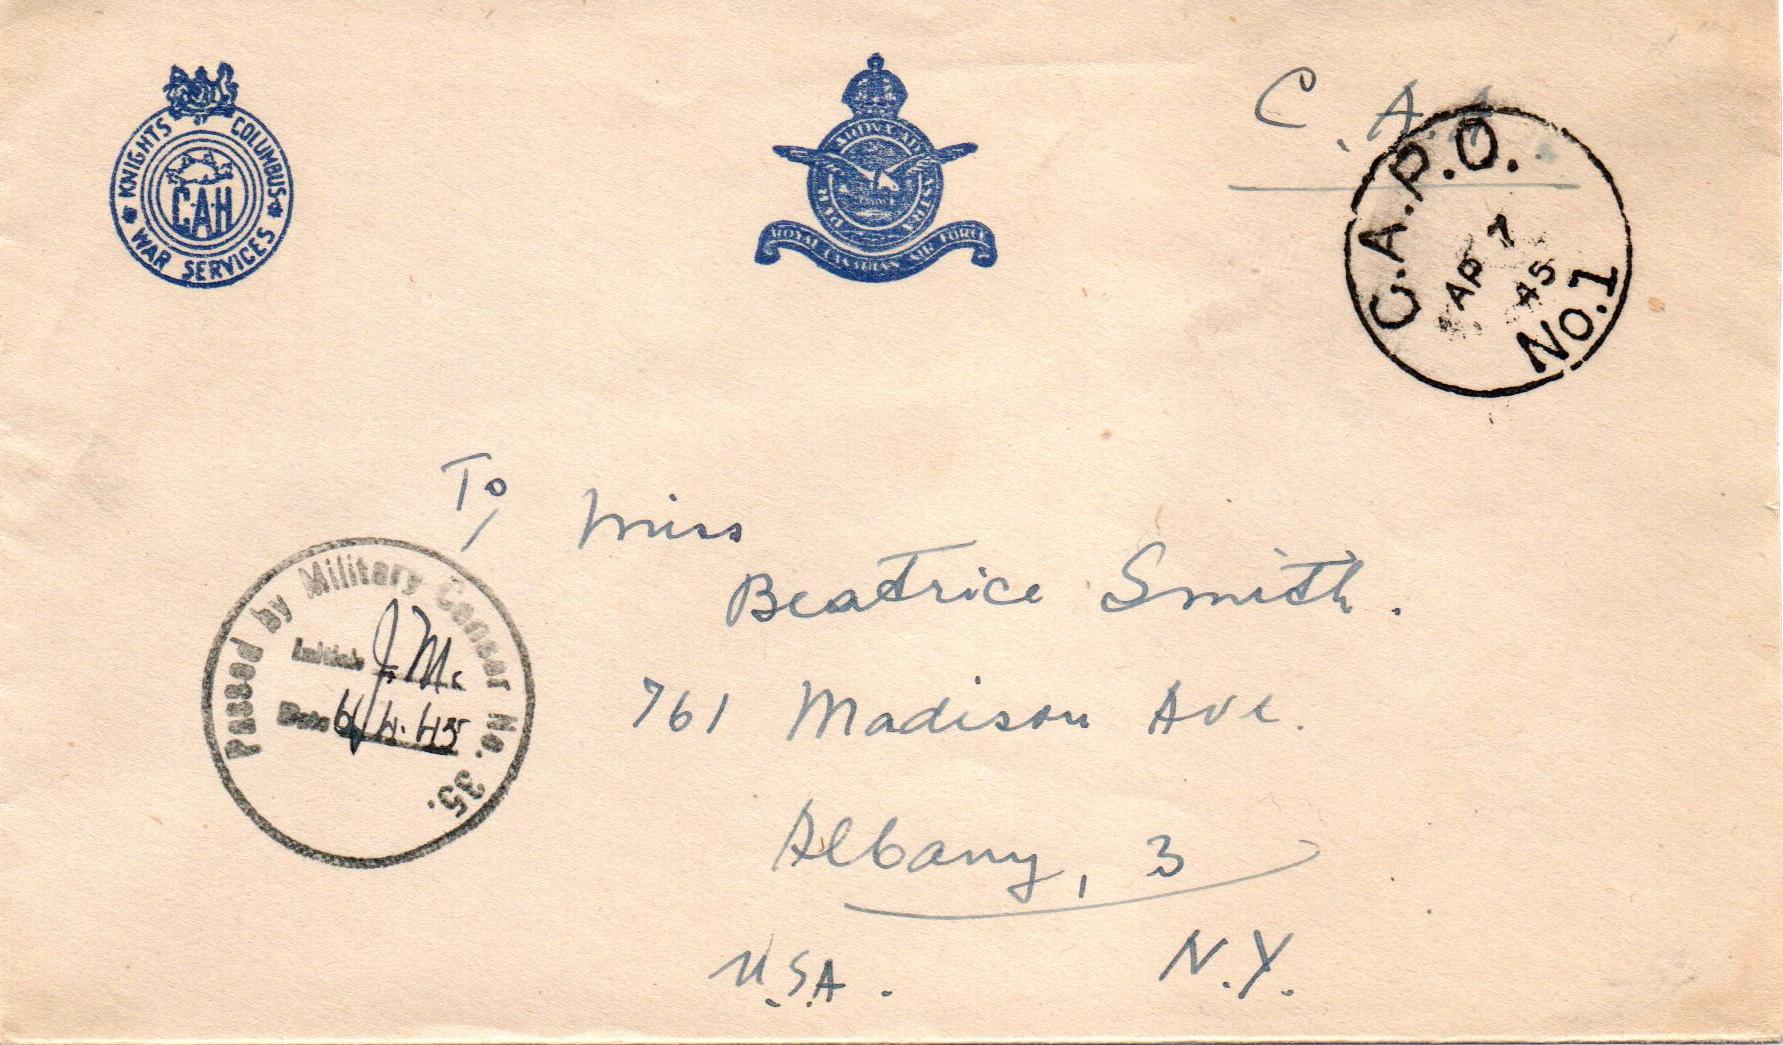 KNIGHTS OF COLUMBUS
C·A·H
WAR SERVICES
PER ARDVA AD ASTRA
ROYAL CANADIAN AIR FORCE
C.A.
C.A.P.O.
AP 7
45
No. 1
To,
Miss
Beatrice Smith.
761 Madison Ave.
Albany, 3
N.Y.
U.S.A.
Passed by Military Censor No. 35.
Initials J. Mc
Date 6/4.45